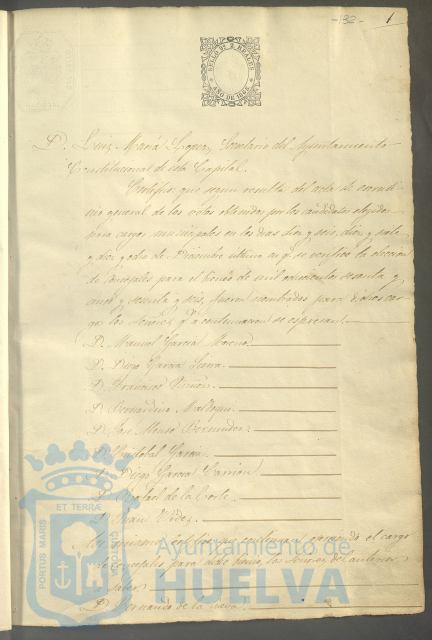 -132-
1
SELLO 9º 2 REALES
AÑO DE 1865
D. Luis María Lopez, Secretario del Ayuntamiento
Constitucional de esta Capital.
Certifico: que segun resulta del acta de escruti-
nio general de los votos obtenidos por los candidatos elegidos
para cargos municipales en los dias diez y seis, diez y siete
y diez y ocho de Diciembre ultimo en qe. se verificó la eleccion
de Concejales para el bienio de mil ochocientos sesenta y
cinco y sesenta y seis, fueron nombrados para dichos car-
gos los Señores qe. a continuacion se espresan
D. Manuel Garcia
D. Diego Garcia
D. Francisco
D. Bernardino
D. José Alonso Bermudez
D. Cristobal Garcia
D. Diego Garcia Carrion
D. Rafael de la Corte
D. Juan
continuan ejerciendo el cargo
de Concejales para dicho bienio, los Señores del anterior
a saber
D. Fernando de la
ET TERRÆ
PORTUS MARIS
CUSTODIA
Ayuntamiento de
HUELVA